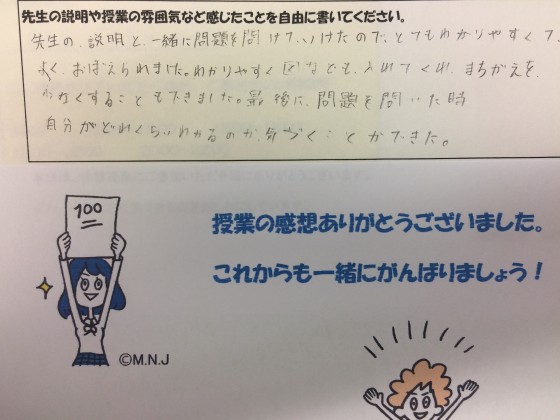 先生の説明や授業の雰囲気など感じたことを自由に書いてください。
先生の、説明と一緒に問題を問けていけたので、とてもわかりやすくて、
よく、おぼえられました。わかりやすく図なども、入れてくれ、まちがえを、
少なくすることもできました。最後に、問題を問いた時
自分がどれくらいわかるのか、気づくことができた。
100
授業の感想ありがとうございました。
これからも一緒にがんばりましょう！
©M.N.J